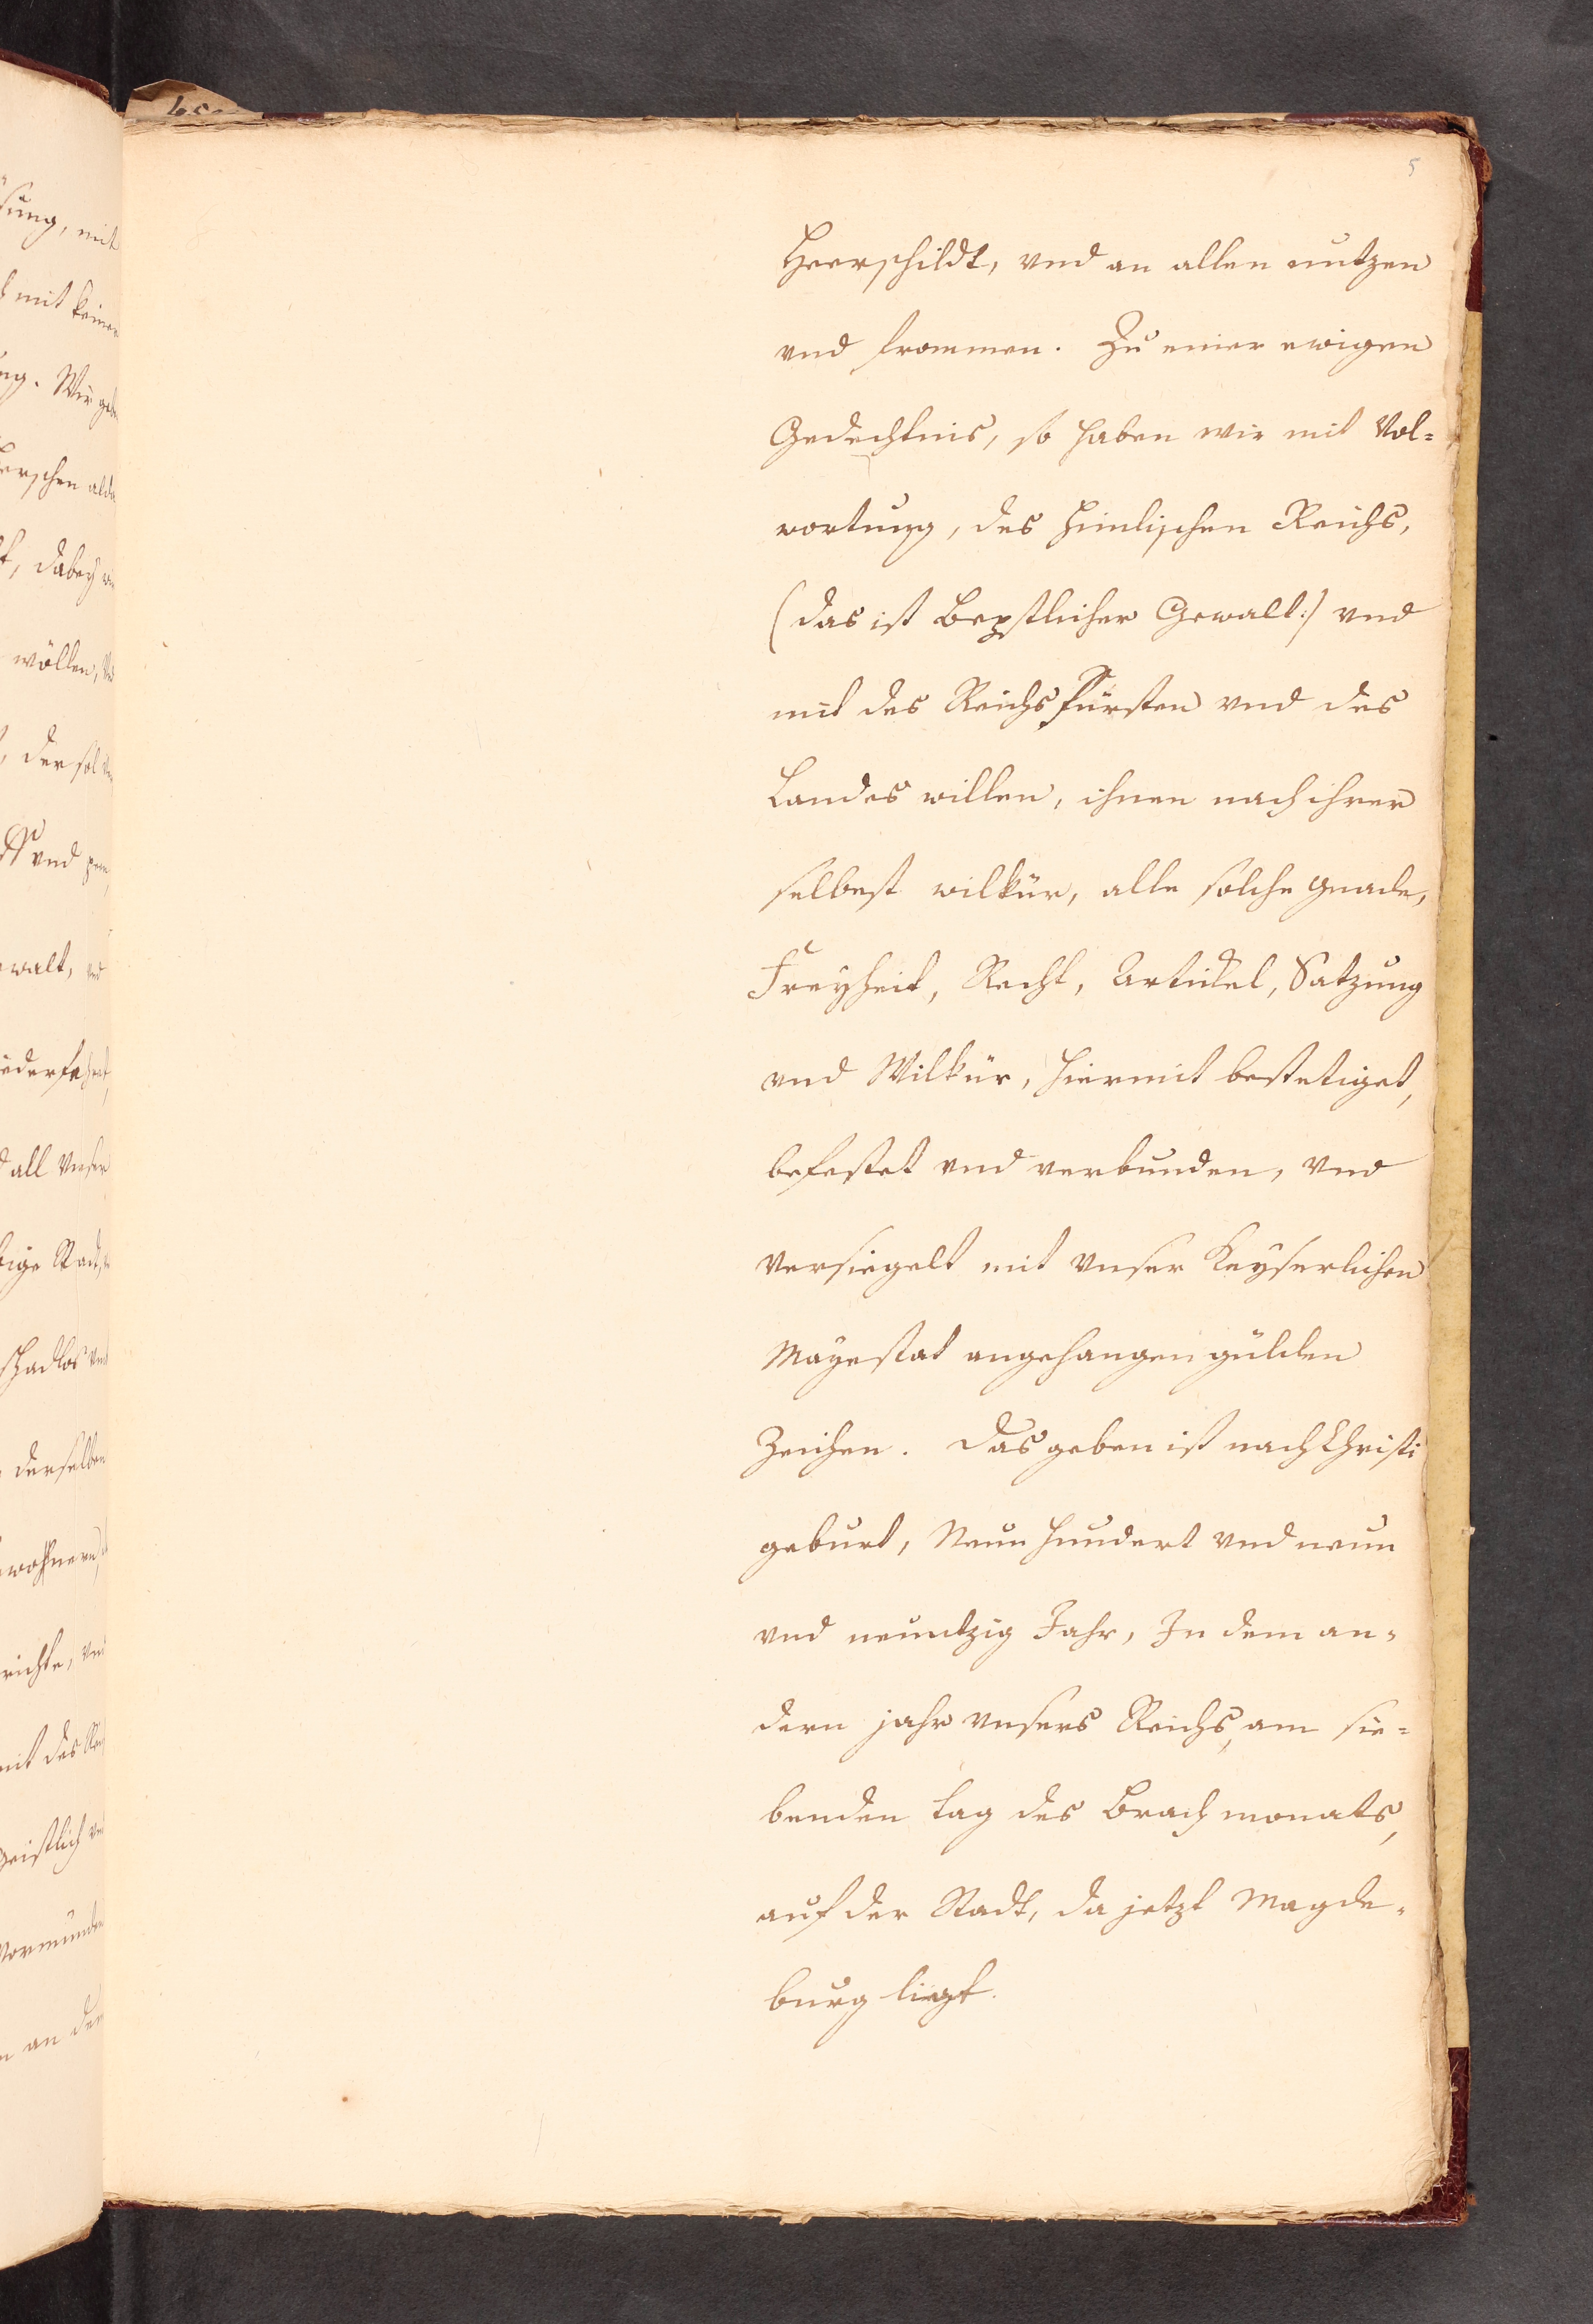 5
Heerschildt, vnd an allen nutzen
vnd frommen. Zu einer ewigen
Gedechtnis, so haben wir mit Vol-
wortung, des himlischen Reichs,
(das ist Bepstlicher Gewalt:) vnd
mit des Reichs fürsten vnd des
Landes willen, ihnen nach ihrer
selbest wilkür, alle solche gnade,
Freyheit, Recht, Artickel, Satzung
vnd Wilkür, hiermit bestetiget,
befestet vnd verbunden, vnd
versiegelt mit vnser Keyserlichen
Mayestat angehangen gülden
Zeichen. Das geben ist nach Christi
geburt, Neun hundert vnd neun
vnd neuntzig Jahr, In dem an-
dern jahr vnsers Reichs, am sie-
benden tag des Brach monats,
auf der Stadt, da jetzt Magde-
burg liegt.